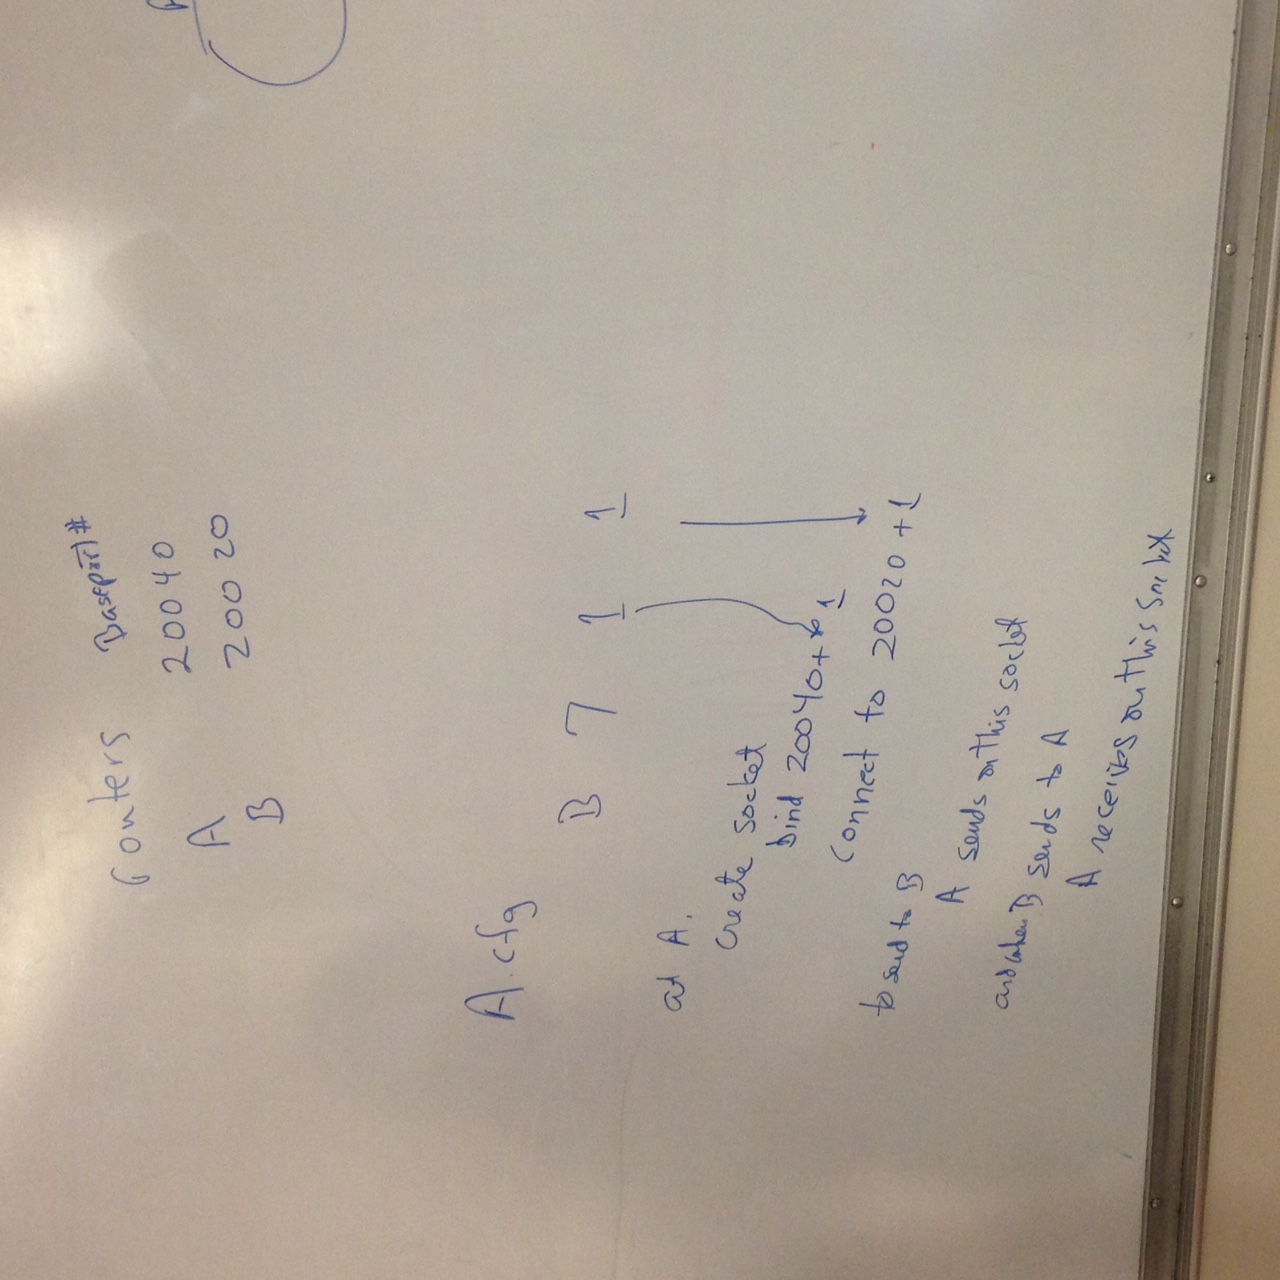 routers Baseport#
A 20040
B 20020
A.cfg
B 7 1 1
at A.
create socket
bind 20040+ 1
connect to 20020 +1
to send to B
A sends on this socket
and when B sends to A
A receives on this socket